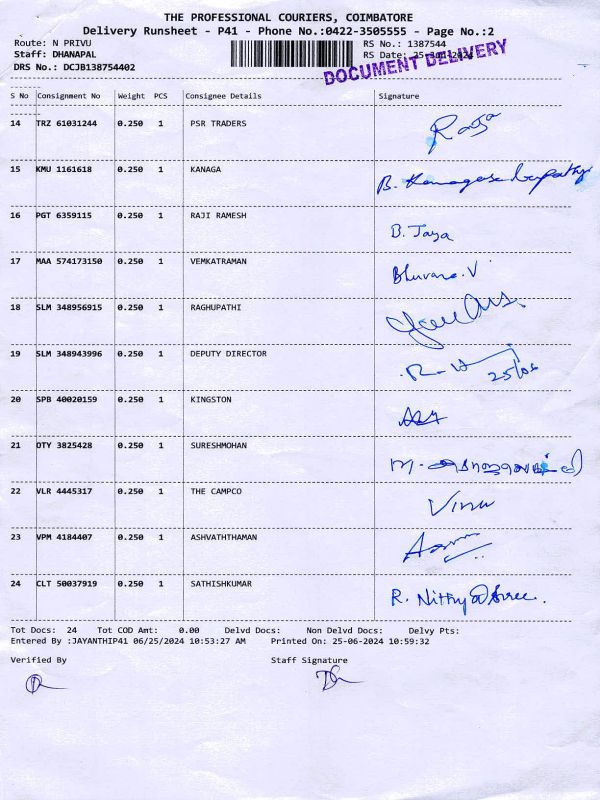 THE PROFESSIONAL COURIERS, COIMBATORE
Delivery Runsheet - P41 - Phone No.:0422-3505555 - Page No.:2
Route: N PRIVU RS No.: 1387544
Staff: DHANAPAL RS Date: 25-Jun-2024
DRS No.: DCJB138754402
DOCUMENT DELIVERY
S No Consignment No Weight PCS Consignee Details Signature
14 TRZ 61031244 0.250 1 PSR TRADERS Raja
15 KMU 1161618 0.250 1 KANAGA B.
16 PGT 6359115 0.250 1 RAJI RAMESH B. Jaya
17 MAA 574173150 0.250 1 VEMKATRAMAN Bhuvane.V
18 SLM 348956915 0.250 1 RAGHUPATHI
19 SLM 348943996 0.250 1 DEPUTY DIRECTOR 25/06
20 SPB 40020159 0.250 1 KINGSTON
21 OTY 3825428 0.250 1 SURESHMOHAN
22 VLR 4445317 0.250 1 THE CAMPCO Vinu
23 VPM 4184407 0.250 1 ASHVATHTHAMAN
24 CLT 50037919 0.250 1 SATHISHKUMAR R.
Tot Docs: 24 Tot COD Amt: 0.00 Delvd Docs: Non Delvd Docs: Delvy Pts:
Entered By :JAYANTHIP41 06/25/2024 10:53:27 AM Printed On: 25-06-2024 10:59:32
Verified By Staff Signature